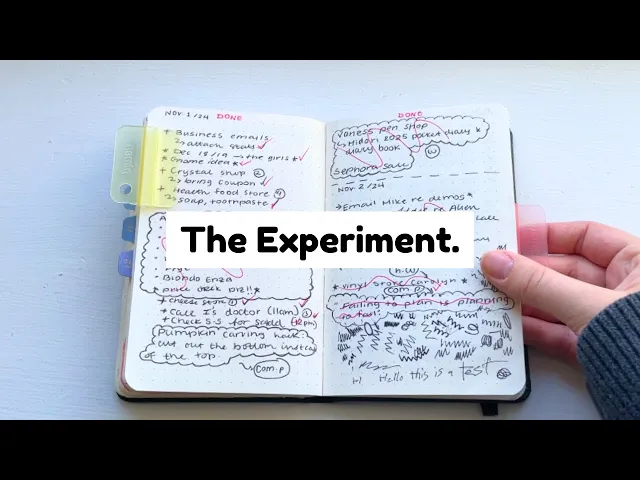 NOV 1/24 DONE
+ Business emails
↳ attach stats
* Dec 18/19 → the girls *
* Oname idea *
+ Crystal shop 2
↳ bring coupon
+ Health food store 4
↳ soap, toothpaste
The Experiment.
* Biondo Enza
price check biz!!*
+ cheese store 1
+ Call I's doctor (11am) 3
+ Check S-S for salad (12pm)
Pumpkin carving hack:
cut out the bottom instead
of the top.
com.p
DONE
Vaness pen shop
↳ Midori 2025 pocket diary *
diary book
Sephora sale
w
NOV 2/24
→ Email Mike re demos *
re Alien
n.w
* vinyl store Carolyn *
com.p
Failing to plan is planning
to fail.
Hi Hello this is a test